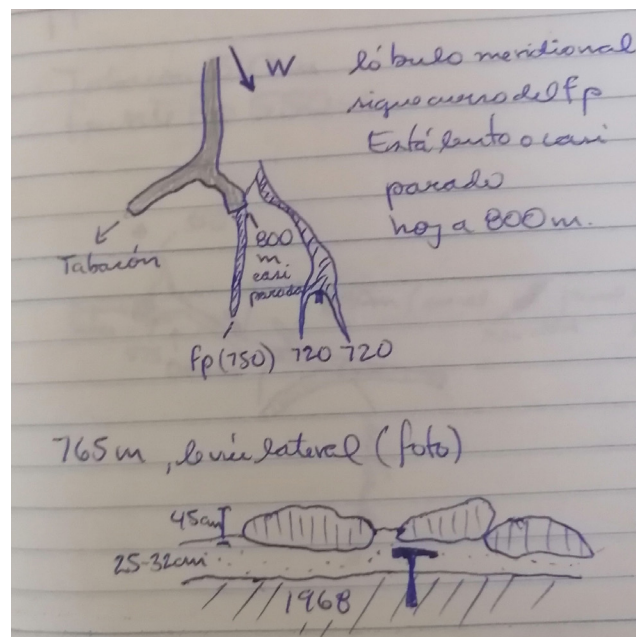 W
lóbulo meridional
sigue curso del fp
Está lento o casi
parado
hoy a 800 m.
Tabarón
800
m.
casi
parado
fp (750) 720 720
765 m, levée lateral (foto)
45cm
25-32cm
1968